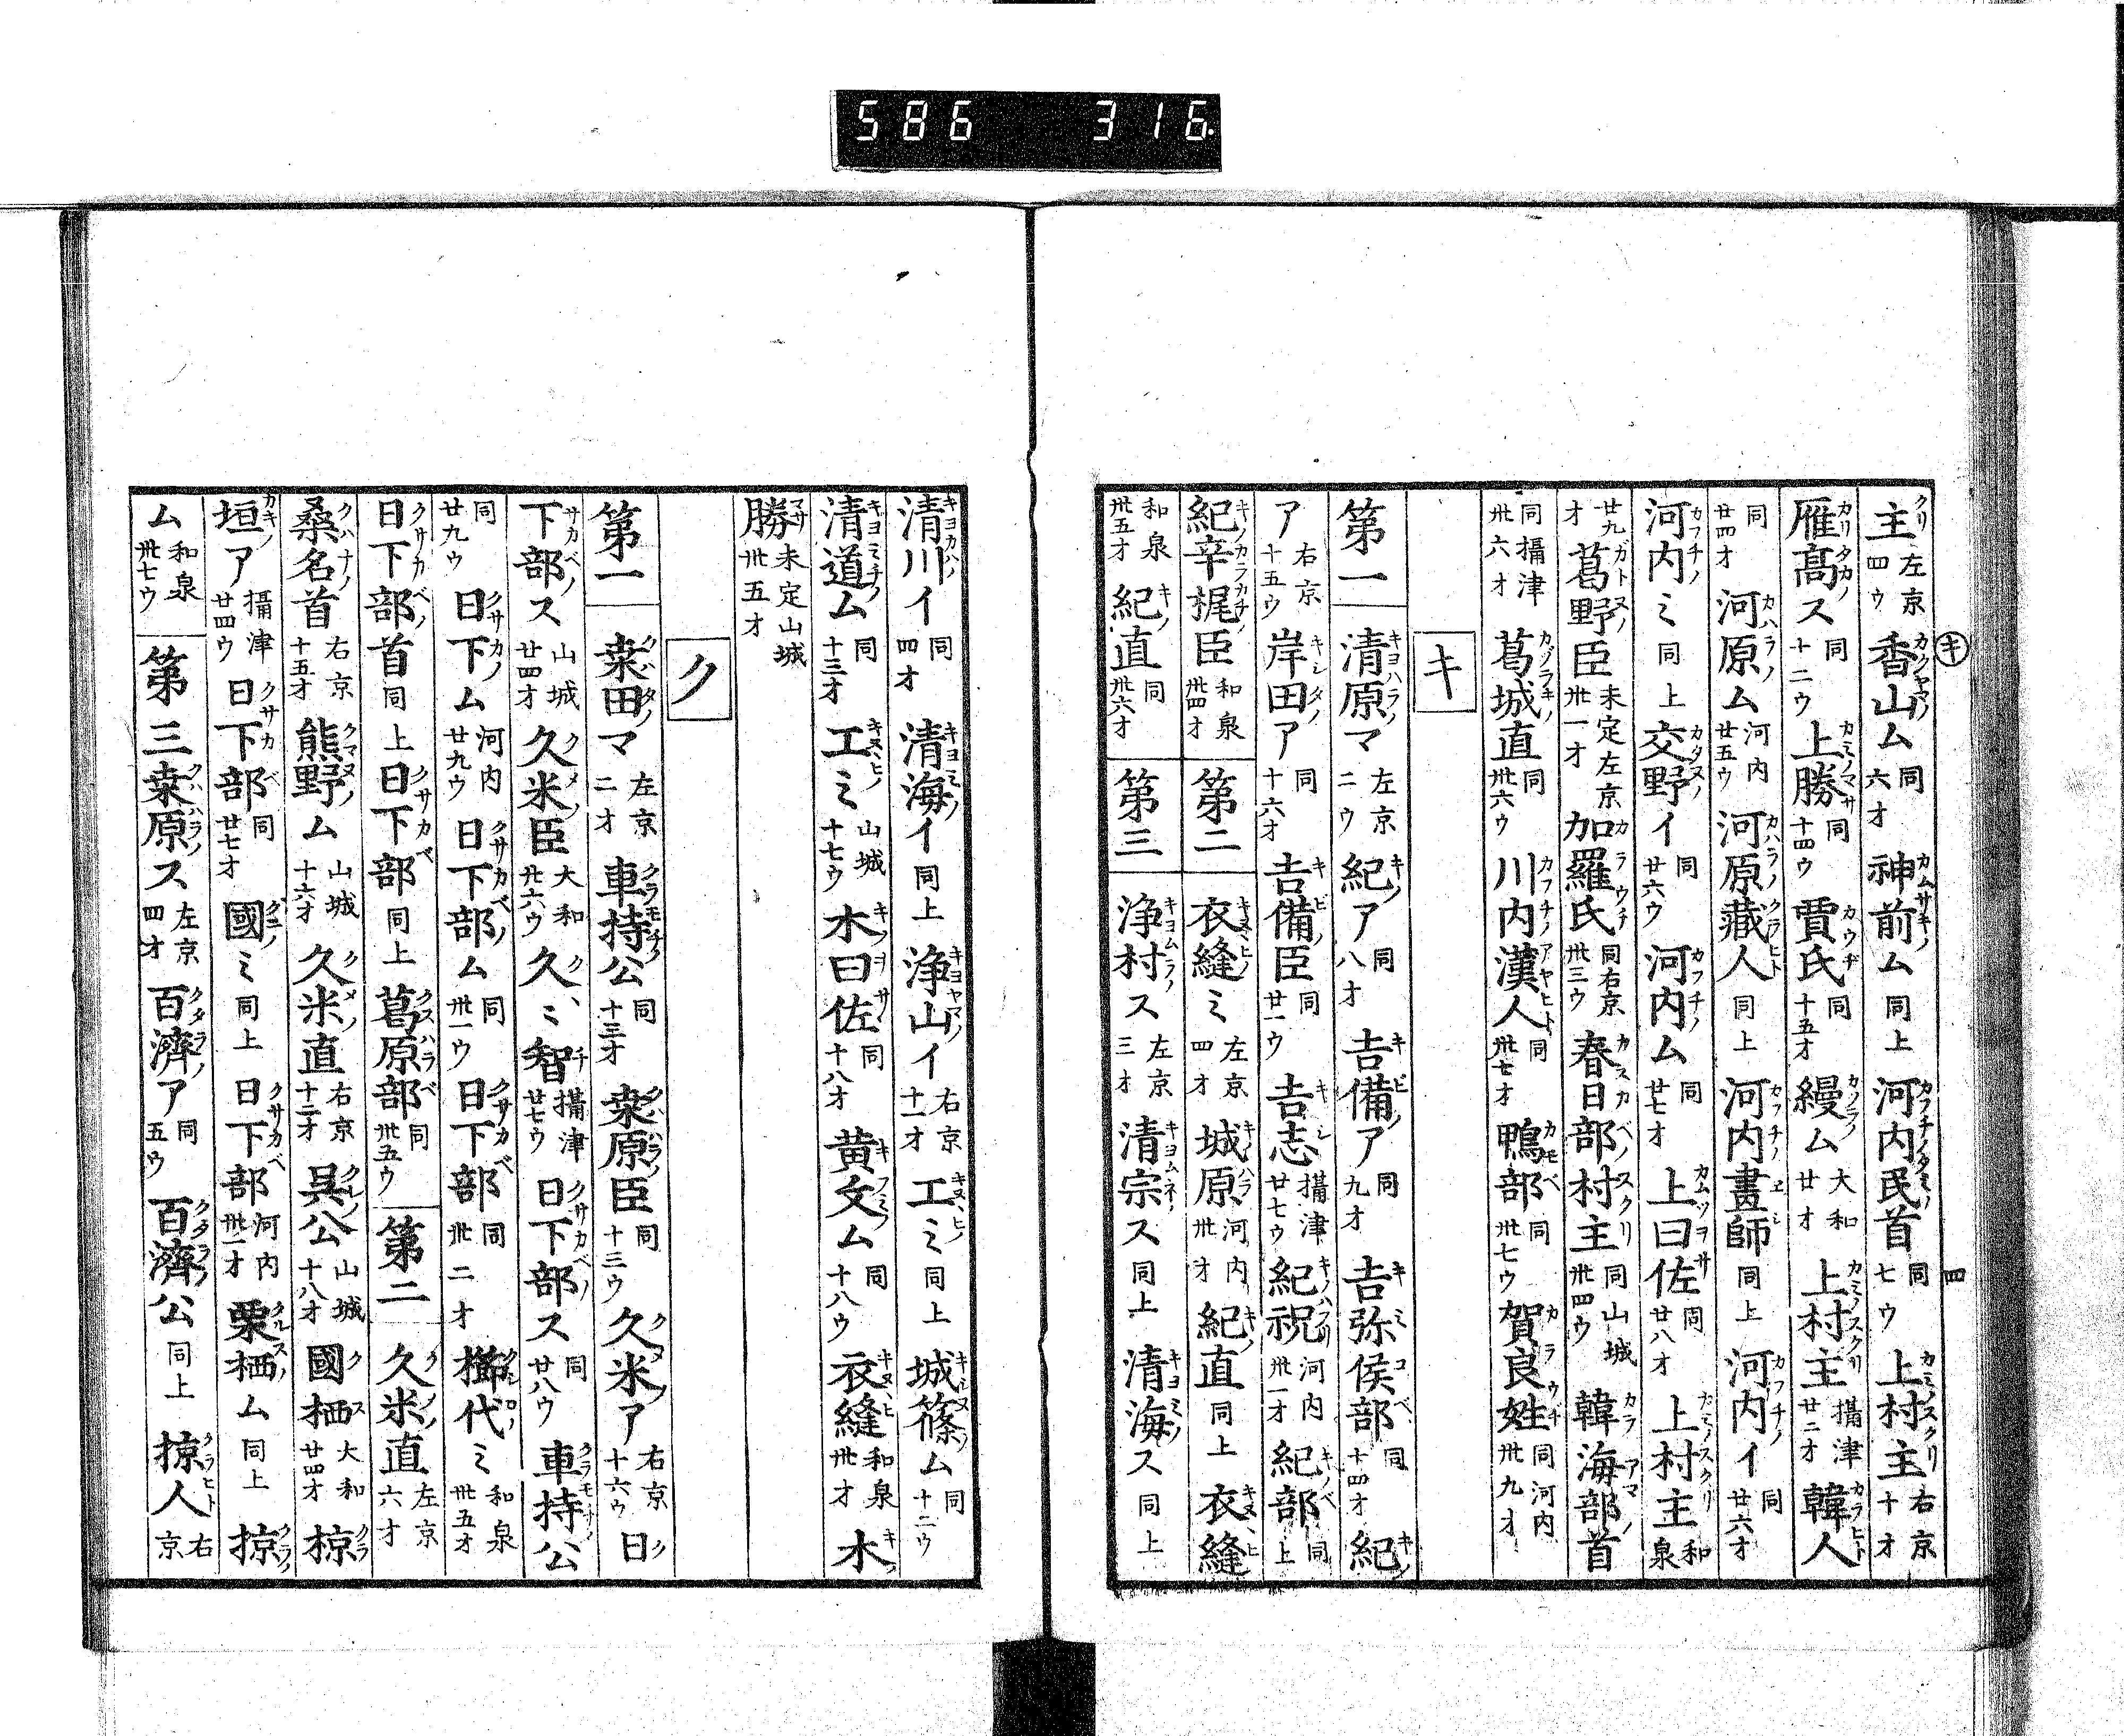 586 316.
キ
四
主左京四ウ 香山ム同六オ 神前ム同上 河内民首同七ウ 上村主右京十オ
雁高ス同十二ウ 上勝同十四ウ 賈氏同十五オ 縵ム大和廿オ 上村主攝津廿二オ 韓人
同廿四オ 河原ム河内廿五ウ 河原藏人同上 河内畫師同上 河内イ同廿六オ
河内ミ同上 交野イ同廿六ウ 河内ム同廿七オ 上曰佐同廿八オ 上村主和泉
廿九オ 葛野臣未定左京卅一オ 加羅氏同右京卅三ウ 春日部村主同山城卅四ウ 韓海部首
同攝津卅六オ 葛城直同卅六ウ 川内漢人同卅七オ 鴨部同卅七ウ 賀良姓同河内卅九オ
キ
第一 清原マ左京二ウ 紀ア同八オ 吉備ア同九オ 吉弥侯部同十四オ 紀
ア右京十五ウ 岸田ア同十六オ 吉備臣同廿一ウ 吉志攝津廿七ウ 紀祝河内卅一オ 紀部同上
紀辛梶臣和泉卅四オ 第二 衣縫ミ左京四オ 城原河内卅オ 紀直同上 衣縫
和泉卅五オ 紀直同卅六オ 第三 浄村ス左京三オ 清宗ス同上 清海ス同上
清川イ同四オ 清海イ同上 浄山イ右京十一オ 工ミ同上 城篠ム同十二ウ
清道ム同十三オ 工ミ山城十七ウ 木曰佐同十八オ 黄文ム同十八ウ 衣縫和泉卅オ 木
勝未定山城卅五オ
ク
第一 桒田マ左京二オ 車持公同十三オ 桒原臣同十三ウ 久米ア右京十六ウ 日
下部ス山城廿四オ 久米臣大和廿六ウ 久ミ智攝津廿七ウ 日下部ス同廿八ウ 車持公
同廿九ウ 日下ム河内廿九ウ 日下部ム同卅一ウ 日下部同卅二オ 櫛代ミ和泉卅五オ
日下部首同上 日下部同上 葛原部同卅五ウ 第二 久米直左京六オ
桑名首右京十五オ 熊野ム山城十六オ 久米直右京十二オ 呉公山城十八オ 國栖大和廿四オ 椋
垣ア攝津廿四ウ 日下部同廿七オ 國ミ同上 日下部河内卅一オ 栗栖ム同上 掠
ム和泉卅七ウ 第三 桒原ス左京四オ 百濟ア同五ウ 百濟公同上 掠人右京